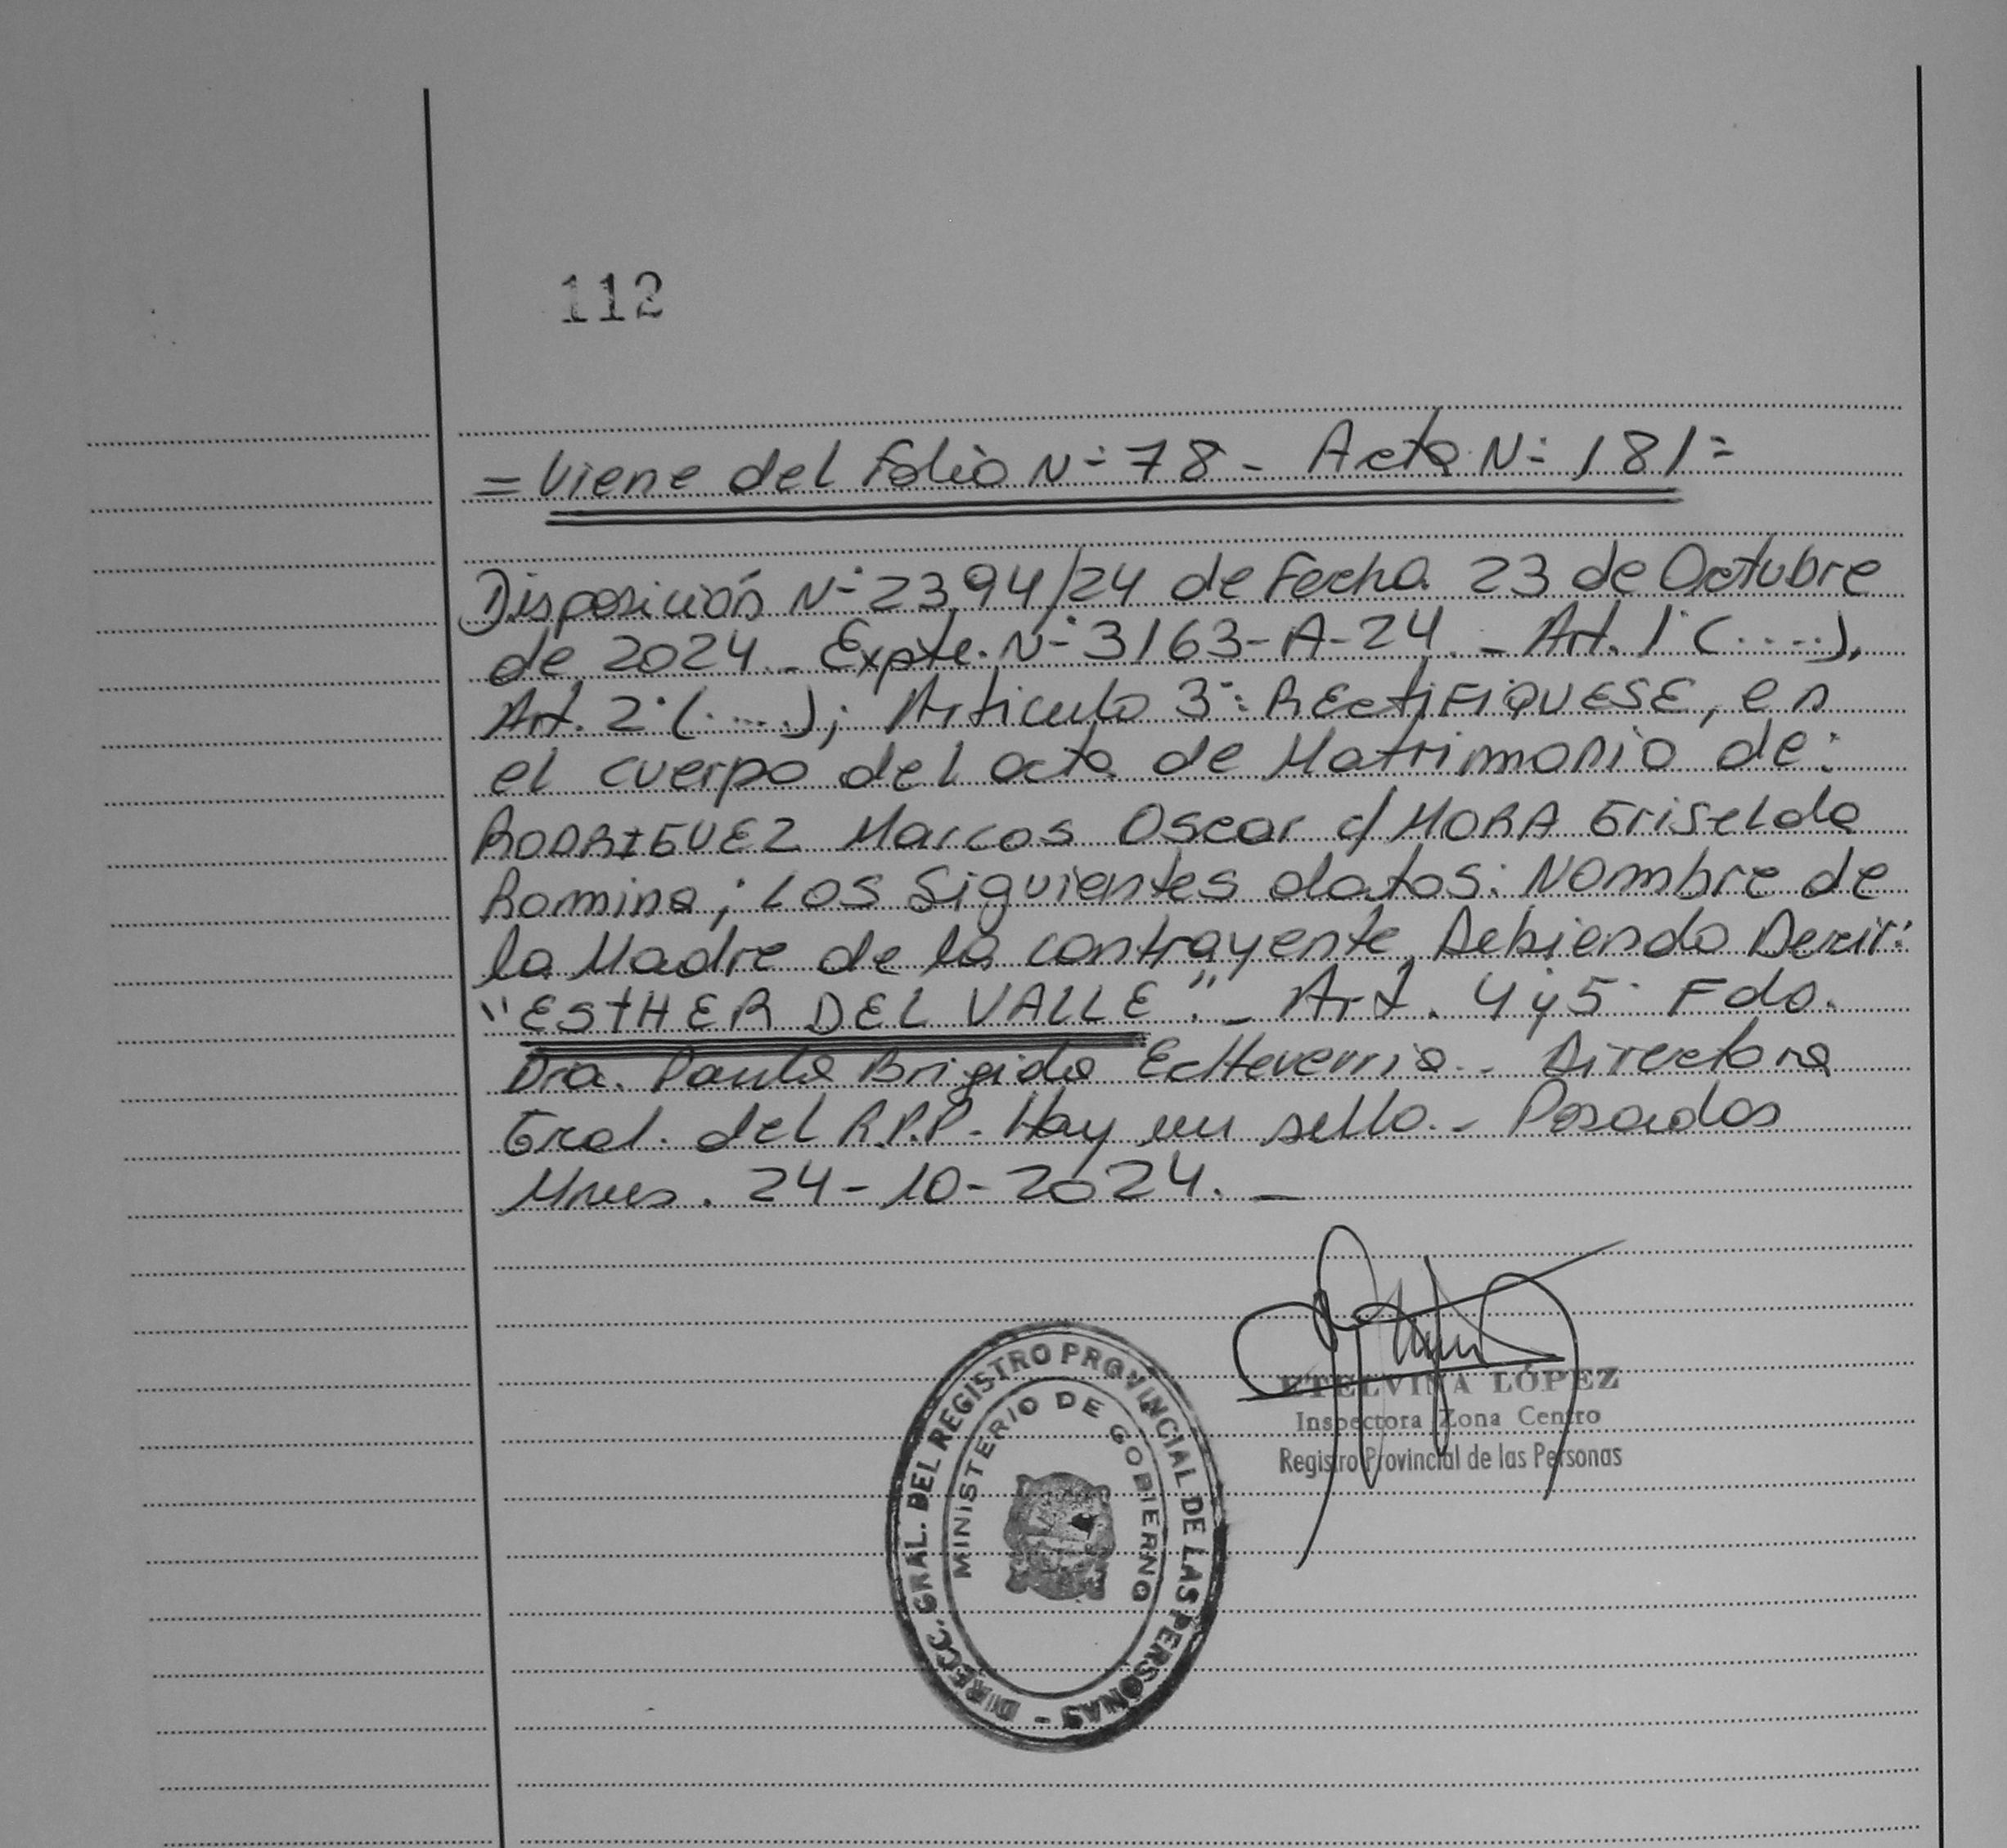 112
= Viene del Folio N° 78 - Acta N° 181 =
Disposición N° 2394/24 de Fecha 23 de Octubre
de 2024 - Expte. N° 3163-A-24. - Art. 1° (.....),
Art. 2° (.....); Articulo 3°: RECtiFiQUESE, en
el cuerpo del acta de Matrimonio de:
RODRIGUEZ Marcos Oscar c/ MORA Griselda
Romina; Los Siguientes datos: Nombre de
la Madre de la contrayente, Debiendo Decir:
"EStHER DEL VALLE". - Art. 4 y 5° Fdo.
Dra. Paula Brigida Echeverria. - Directora
Gral. del R.P.P. - Hay un sello. - Posadas
Mnes. 24-10-2024. -
ETELVINA LÓPEZ
Inspectora Zona Centro
Registro Provincial de las Personas
DIRECC. GRAL. DEL REGISTRO PROVINCIAL DE LAS PERSONAS -
MINISTERIO DE GOBIERNO